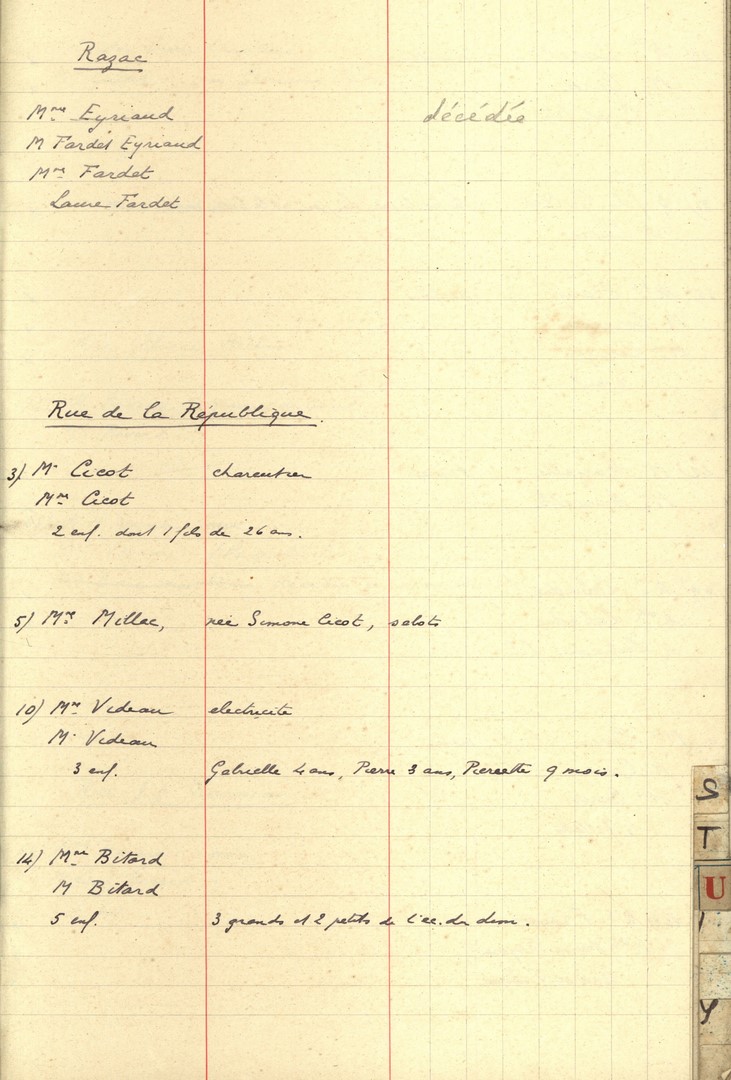 Razac
Mme Eyriaud décédée
M Fardet Eyriaud
Mme Fardet
Laure Fardet
Rue de la République.
3) Mr Cicot charcutier
Mme Cicot
2 enf. dont 1 fils de 26 ans.
5) Mme Millac, née Simone Cicot, sabots
10) Mme Videau electricité
Mr Videau
3 enf. Gabrielle 4 ans, Pierre 3 ans, Pierrette 9 mois.
14) Mme Bitard
M Bitard
5 enf. 3 grands et 2 petits de l'éc. du dim.
S
T
U
Y